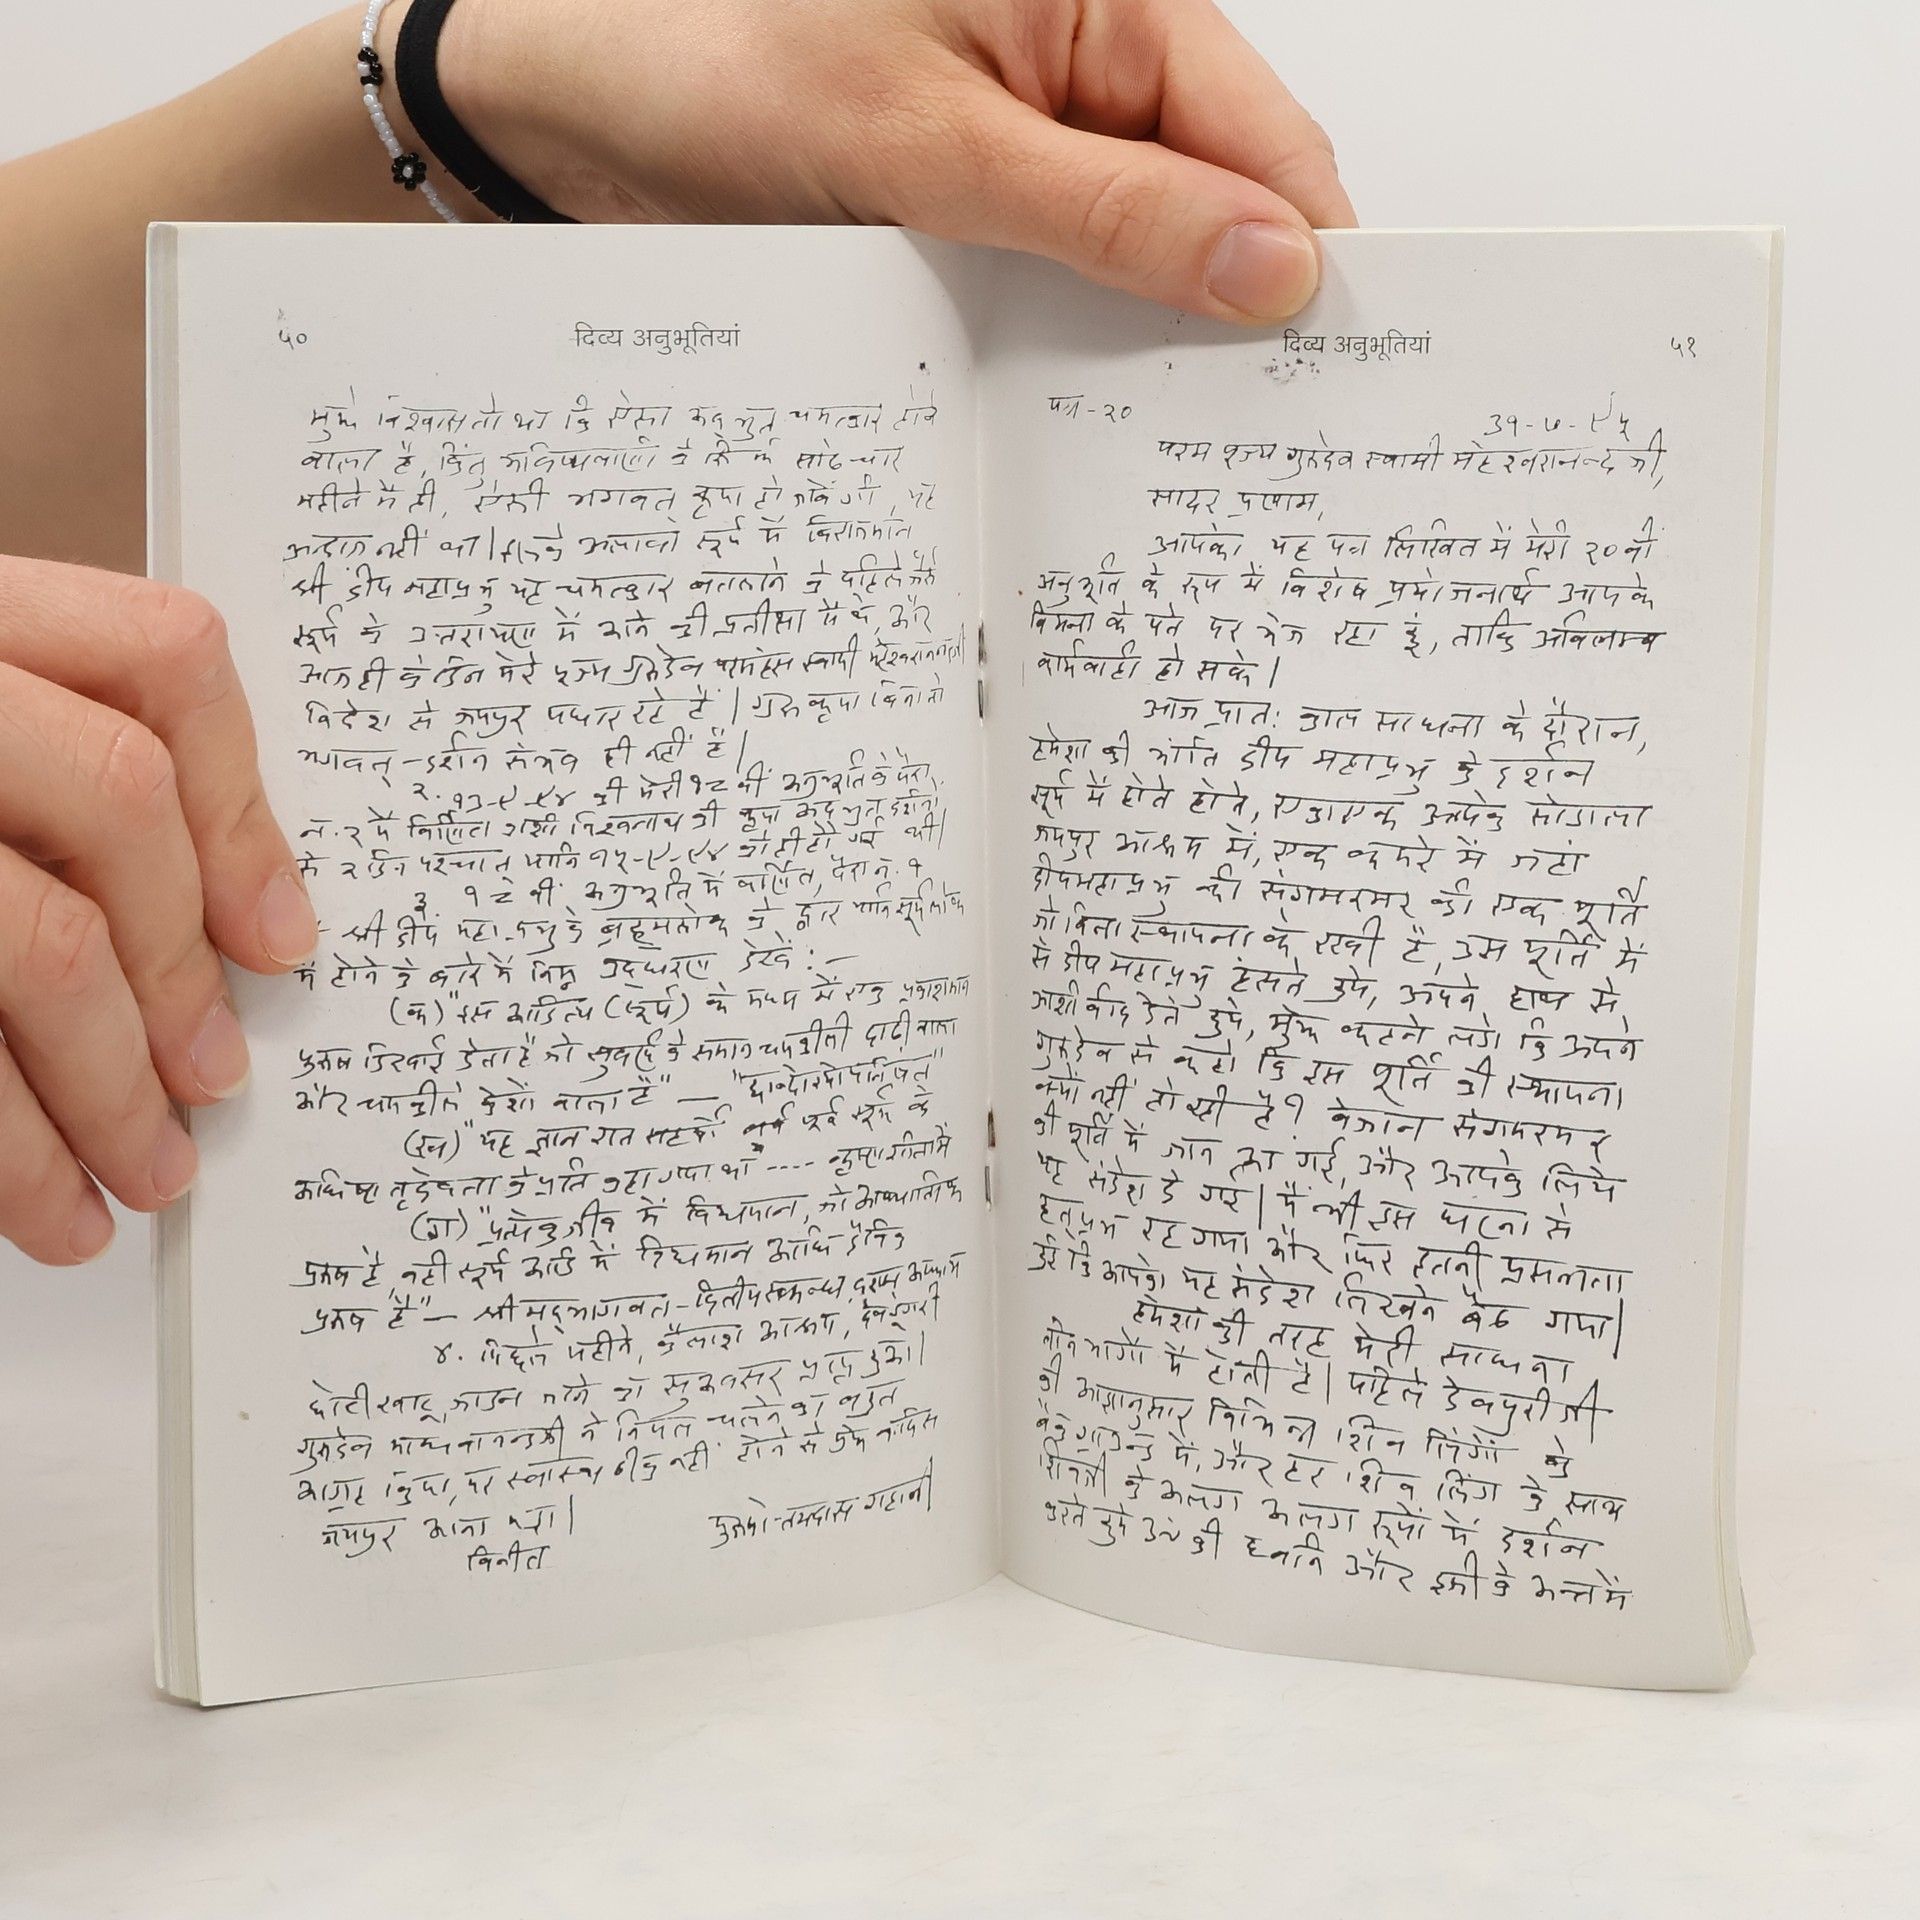 ५०
दिव्य अनुभूतियां
मुझे विश्वास तो था कि ऐसा अद्भुत चमत्कार होने
वाला है, किंतु भविष्यवाणी के सिर्फ साढे चार
महीने में ही, ऐसी भगवत् कृपा हो जावेगी, यह
अन्दाज नहीं था। इसके अलावा सूर्य में विराजमान
श्री दीप महाप्रभु यह चमत्कार बतलाने के पहिले जैसे
सूर्य के उत्तरायण में आने की प्रतीक्षा में थे, और
आज ही के दिन मेरे पूज्य गुरुदेव परमहंस स्वामी महेश्वरानन्दजी
विदेश से जयपुर पधार रहे हैं। गुरु कृपा बिना तो
भगवत्-दर्शन संभव ही नहीं है।
२. १३-९-९४ की मेरी १८ वीं अनुभूति के पैरा
नं. २ में वर्णित काशी विश्वनाथ की कृपा अद्भुत दर्शनों
के २ दिन पश्चात् यानि १५-९-९४ को ही हो गई थी।
३. १८ वीं अनुभूति में वर्णित, पैरा नं. १
श्री दीप महाप्रभु के ब्रह्मलोक के द्वार यानि सूर्यलोक
में होने के बारे में निम्न उद्धरण देखें:-
(क) "इस आदित्य (सूर्य) के मध्य में एक प्रकाशमान
पुरुष दिखाई देता है जो सुवर्ण के समान चमकीली दाढी वाला
और चमकीले केशों वाला है" - "छान्दोग्योपनिषद"
(ख) "यह ज्ञान शत सहस्रों वर्ष पूर्व सूर्य के
अधिष्ठातृदेवता के प्रति कहा गया था ---- कृष्ण गीता में
(ग) "प्रत्येक जीव में विद्यमान, जो आध्यात्मिक
पुरुष है, वही सूर्य आदि में विद्यमान आधि दैविक
पुरुष है" - श्रीमद्भागवत - द्वितीय स्कन्ध, दशम अध्याय
४. पिछले महीने, कैलाश आश्रम, देवडूंगरी
छोटी खाटू, जाडन जाने का सुअवसर प्राप्त हुआ।
गुरुदेव माधवानन्दजी ने निपल चलने का बहुत
आग्रह किया, पर स्वास्थ्य ठीक नहीं होने से मुझे वापिस
जयपुर आना पडा।
विनीत
पुरुषोत्तमदास
दिव्य अनुभूतियां
५१
पत्र-२०
३१-७-९५
परम पूज्य गुरुदेव स्वामी महेश्वरानन्द जी,
सादर प्रणाम,
आपको यह पत्र लिखित में मेरी २० वीं
अनुभूति के रूप में विशेष प्रयोजनार्थ आपके
वियना के पते पर भेज रहा हूं, ताकि अविलम्ब
कार्यवाही हो सके।
आज प्रात: काल साधना के दौरान,
हमेशा की भांति दीप महाप्रभु के दर्शन
सूर्य में होते होते, एकाएक आपके सोडाला
जयपुर आश्रम में, एक कमरे में जहां
दीपमहाप्रभु की संगमरमर की एक मूर्ति
जो बिना स्थापना के रखी है, उस मूर्ति में
से दीप महाप्रभु हंसते हुये, अपने हाथ से
आशीर्वाद देते हुये, मुझे कहने लगे कि अपने
गुरुदेव से कहो कि इस मूर्ति की स्थापना
क्यों नहीं हो रही है? बेजान संगमरमर
की मूर्ति में जान आ गई, और आपके लिये
यह संदेश दे गई। मैं भी इस घटना से
हत्प्रभ रह गया और फिर इतनी प्रसन्नता
हुई कि आपको यह संदेश लिखने बैठ गया।
हमेशा की तरह मेरी साधना
तीन भागों में होती है। पहिले देवपुरीजी
की आज्ञानुसार विभिन्न शिव लिंगों के
बैक ग्राउन्ड में, और हर शिव लिंग के साथ
शिवजी के अलग अलग रूपों में दर्शन
करते हुये ॐ की ध्वनि और इसी के अन्त में